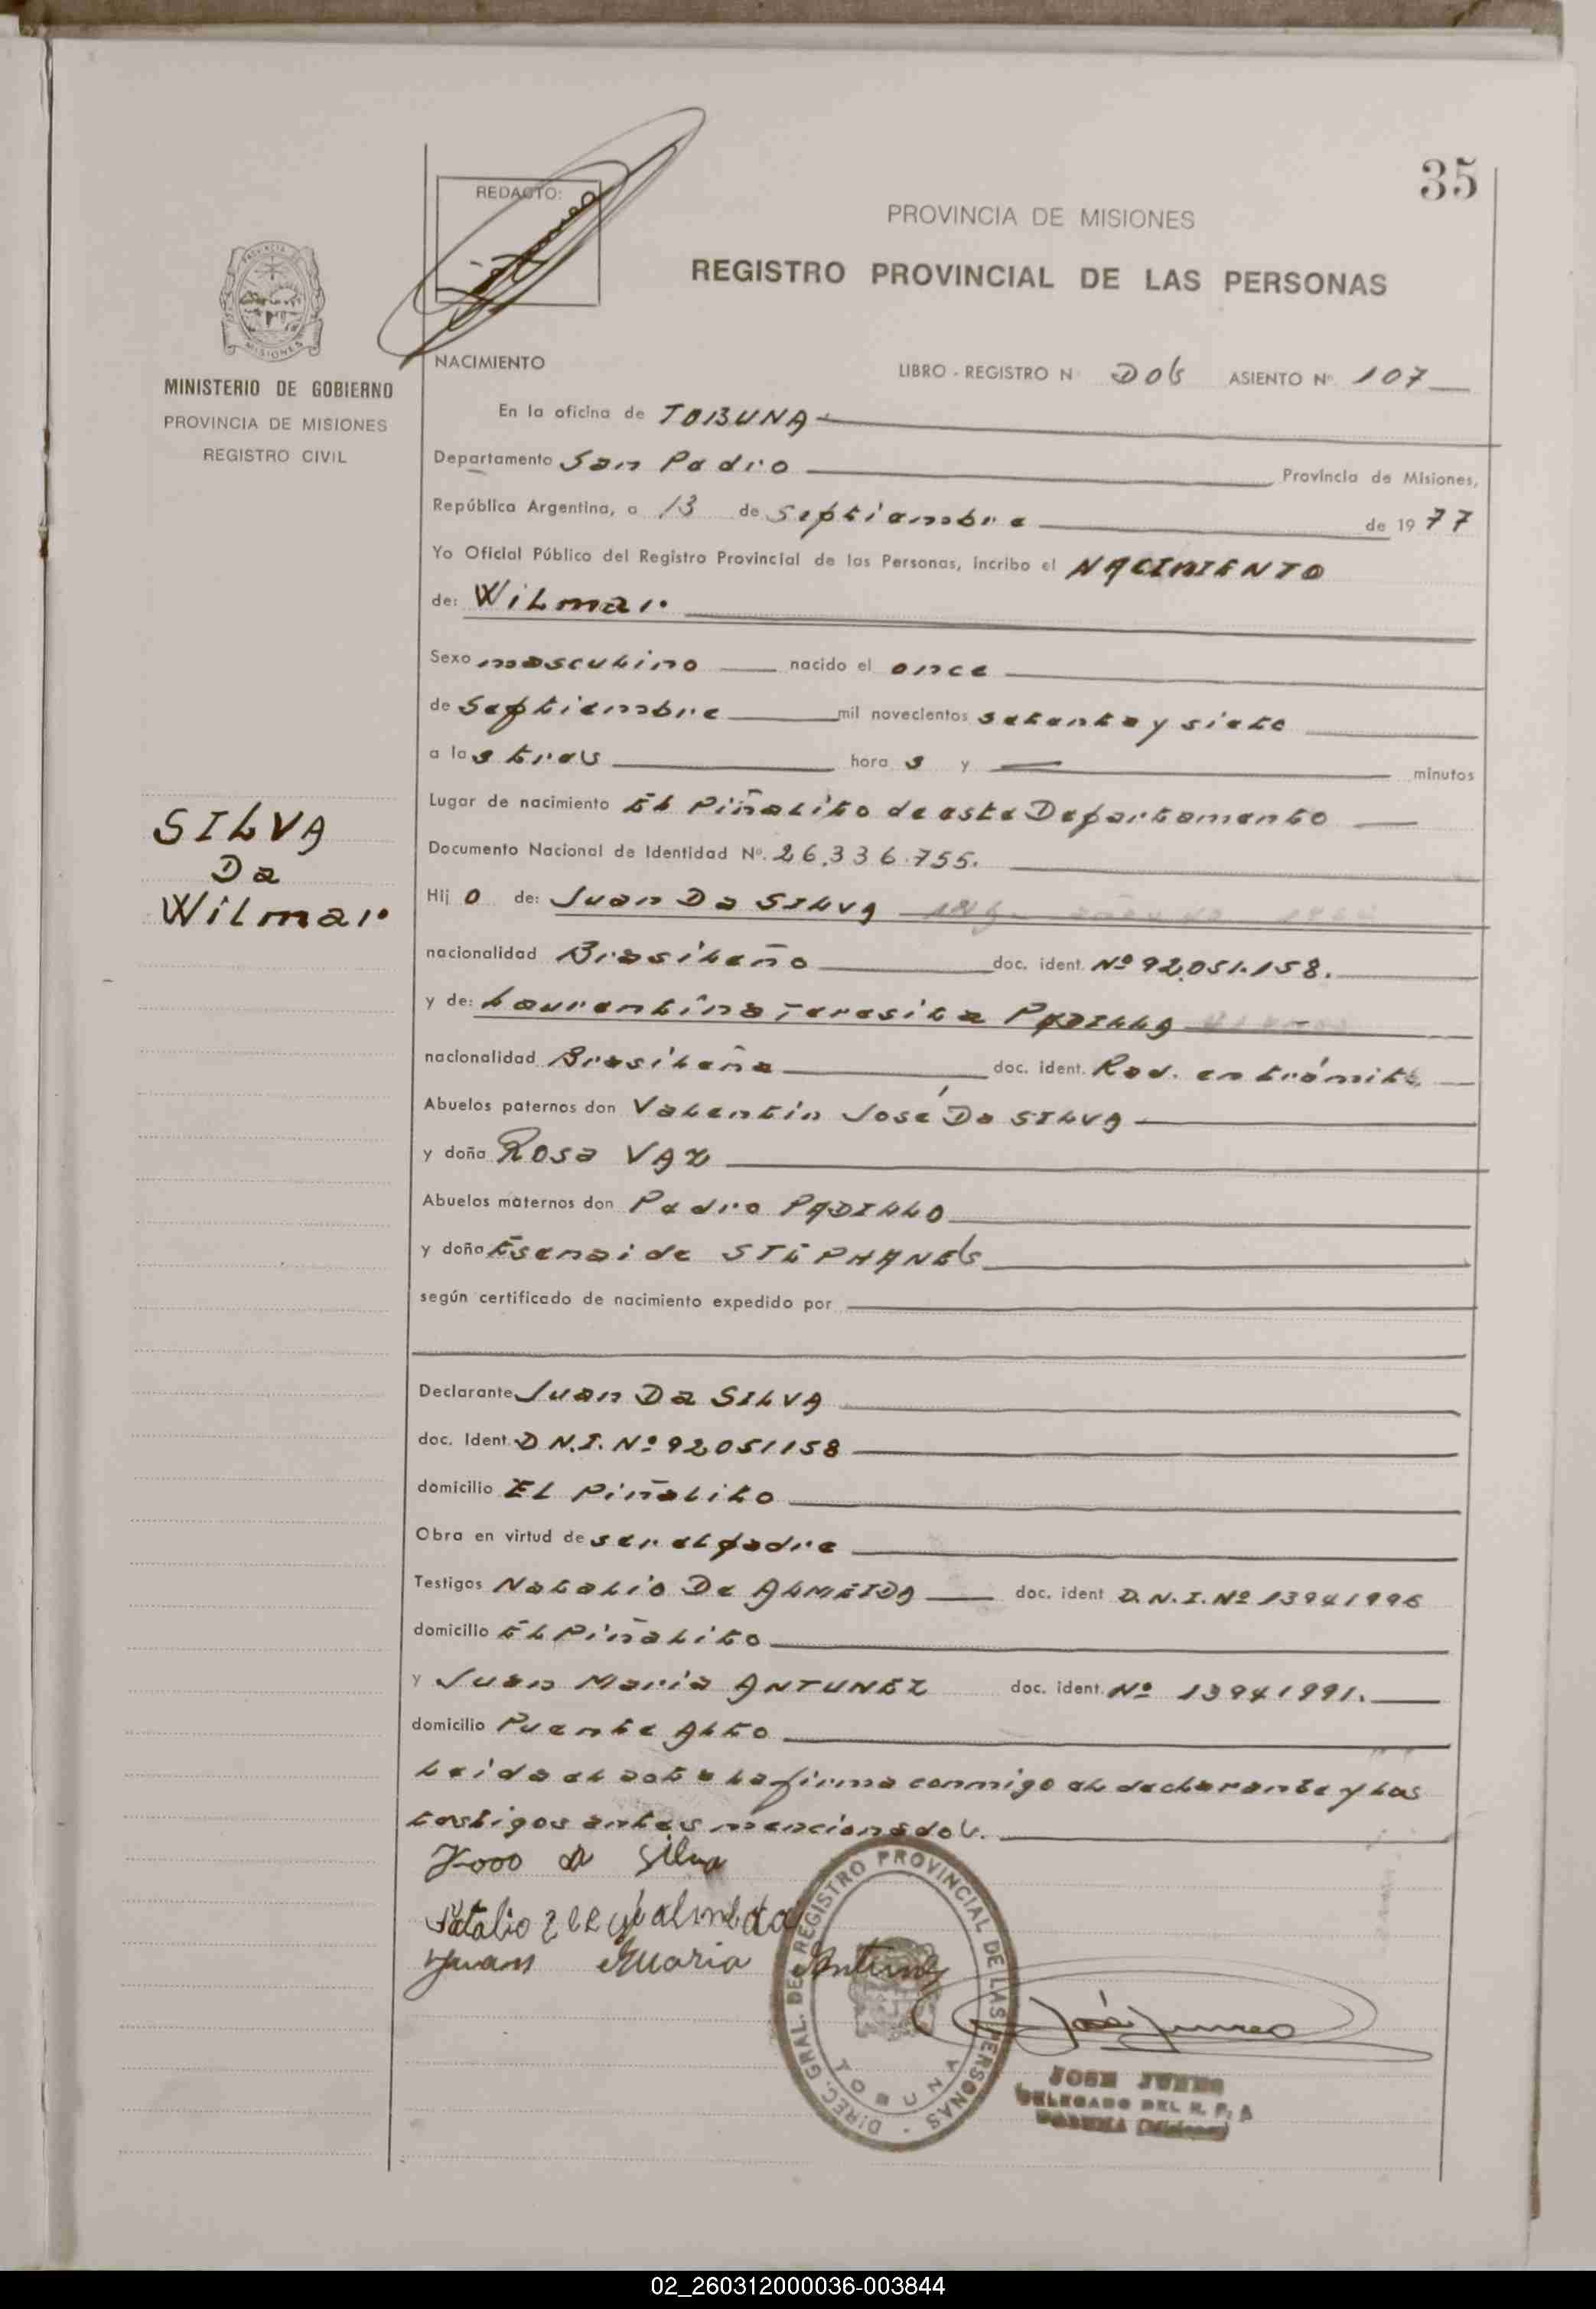 35
REDACTO:
PROVINCIA DE MISIONES
REGISTRO PROVINCIAL DE LAS PERSONAS
MISIONES
MINISTERIO DE GOBIERNO
PROVINCIA DE MISIONES
REGISTRO CIVIL
NACIMIENTO
LIBRO - REGISTRO N Dos ASIENTO Nº 107
En la oficina de TOBUNA
Departamento San Pedro Provincia de Misiones,
República Argentina, a 13 de Septiembre de 1977
Yo Oficial Público del Registro Provincial de las Personas, incribo el NACIMIENTO
de: Wilmar
Sexo masculino nacido el once
de Septiembre mil novecientos setenta y siete
a las tres hora s y — minutos
Lugar de nacimiento El Piñalito de este Departamento
Documento Nacional de Identidad Nº. 26.336.755.
SILVA
Da
Wilmar
Hij o de: Juan Da SILVA
nacionalidad Brasileño doc. ident. Nº 92.051.158.
y de: Laurentina Teresita PADILLA
nacionalidad Brasileña doc. ident. Rad. en trámite
Abuelos paternos don Valentín José Da SILVA
y doña Rosa VAZ
Abuelos maternos don Pedro PADILLO
y doña Esenaide STEPHANES
según certificado de nacimiento expedido por
Declarante Juan Da SILVA
doc. Ident. D.N.I. Nº 92051158
domicilio El Piñalito
Obra en virtud de ser el padre
Testigos Natalio De ALMEIDA doc. ident D.N.I. Nº 13941996
domicilio El Piñalito
y Juan Maria ANTUNEZ doc. ident. Nº 13941991.
domicilio Puente Alto
Leida el acta la firma conmigo el declarante y los
testigos antes mencionados.
Joao da Silva
Natalio almeida
Juan Maria Antunez
DIREC. GRAL. DEL REGISTRO PROVINCIAL DE LAS PERSONAS
TOBUNA
José Junes
JOSE JUNES
DELEGADO DEL R. P.
TOBUNA (Misiones)
02_260312000036-003844